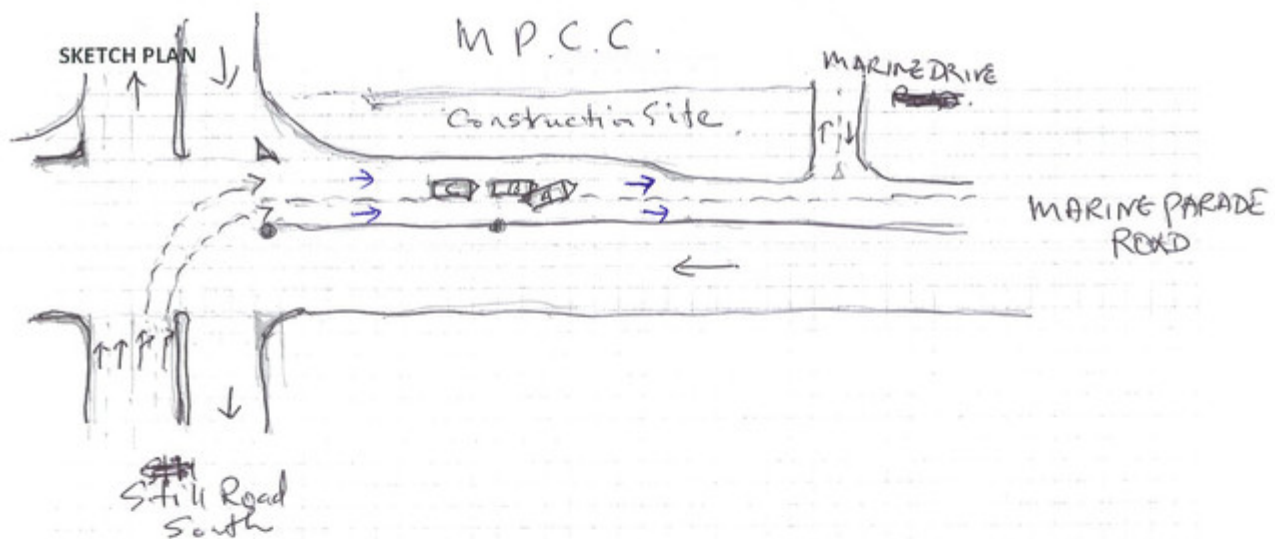 M P. C. C.
SKETCH PLAN
MARINE DRIVE
Construction Site.
C B A
MARINE PARADE
ROAD
Still Road
South